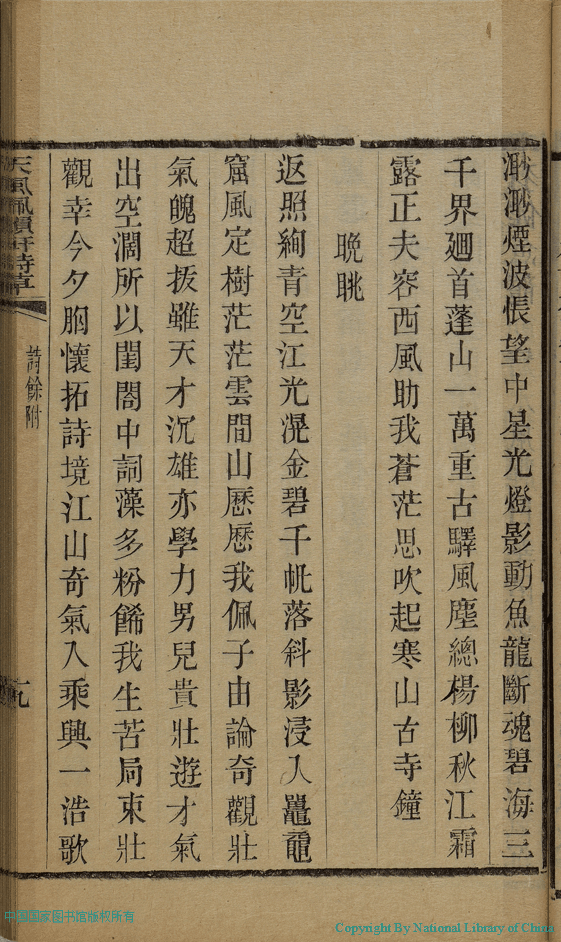 渺渺煙波悵望中星光燈影動魚龍斷魂碧海三
千界廻首蓬山一萬重古驛風塵總楊柳秋江霜
露正夫容西風助我蒼茫思吹起寒山古寺鐘
晩眺
返照絢青空江光滉金碧千帆落斜影浸入鼉龍
窟風定樹茫茫雲間山歷歷我佩子由論奇觀壯
氣魄超拔雖天才沉雄亦學力男兒貴壯遊才氣
出空濶所以閨閤中詞藻多粉餙我生苦局束壯
觀幸今夕胸懷拓詩境江山奇氣入乘興一浩歌
天風佩韻軒詩草
詩餘附
九
中国国家图书馆版权所有
Copyright By National Library of China